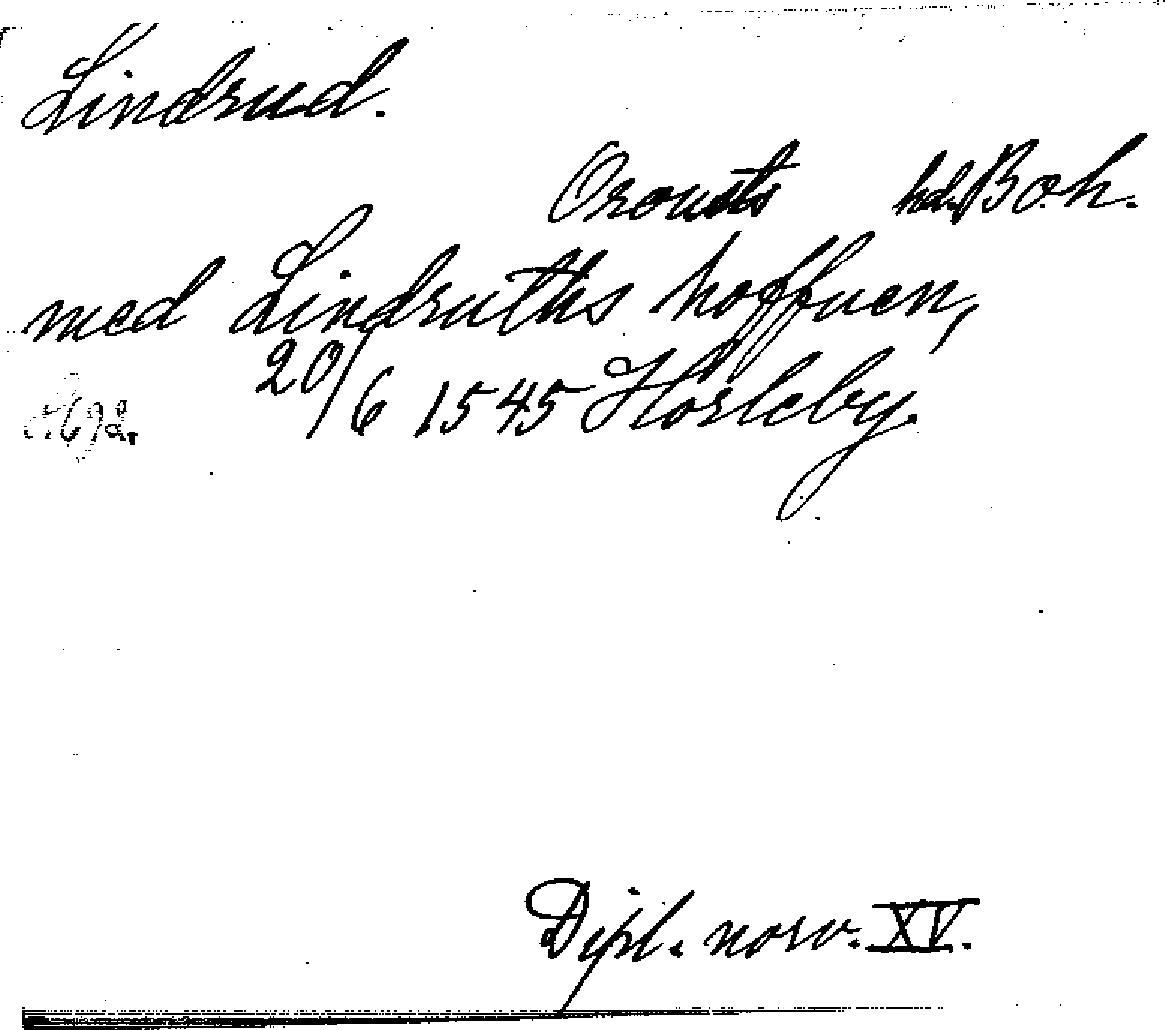 Lindrud.
Orousts hd. Boh.
med Lindruths hoffuen,
20/6 1545 Horleby.
Dipl. norv. XV.